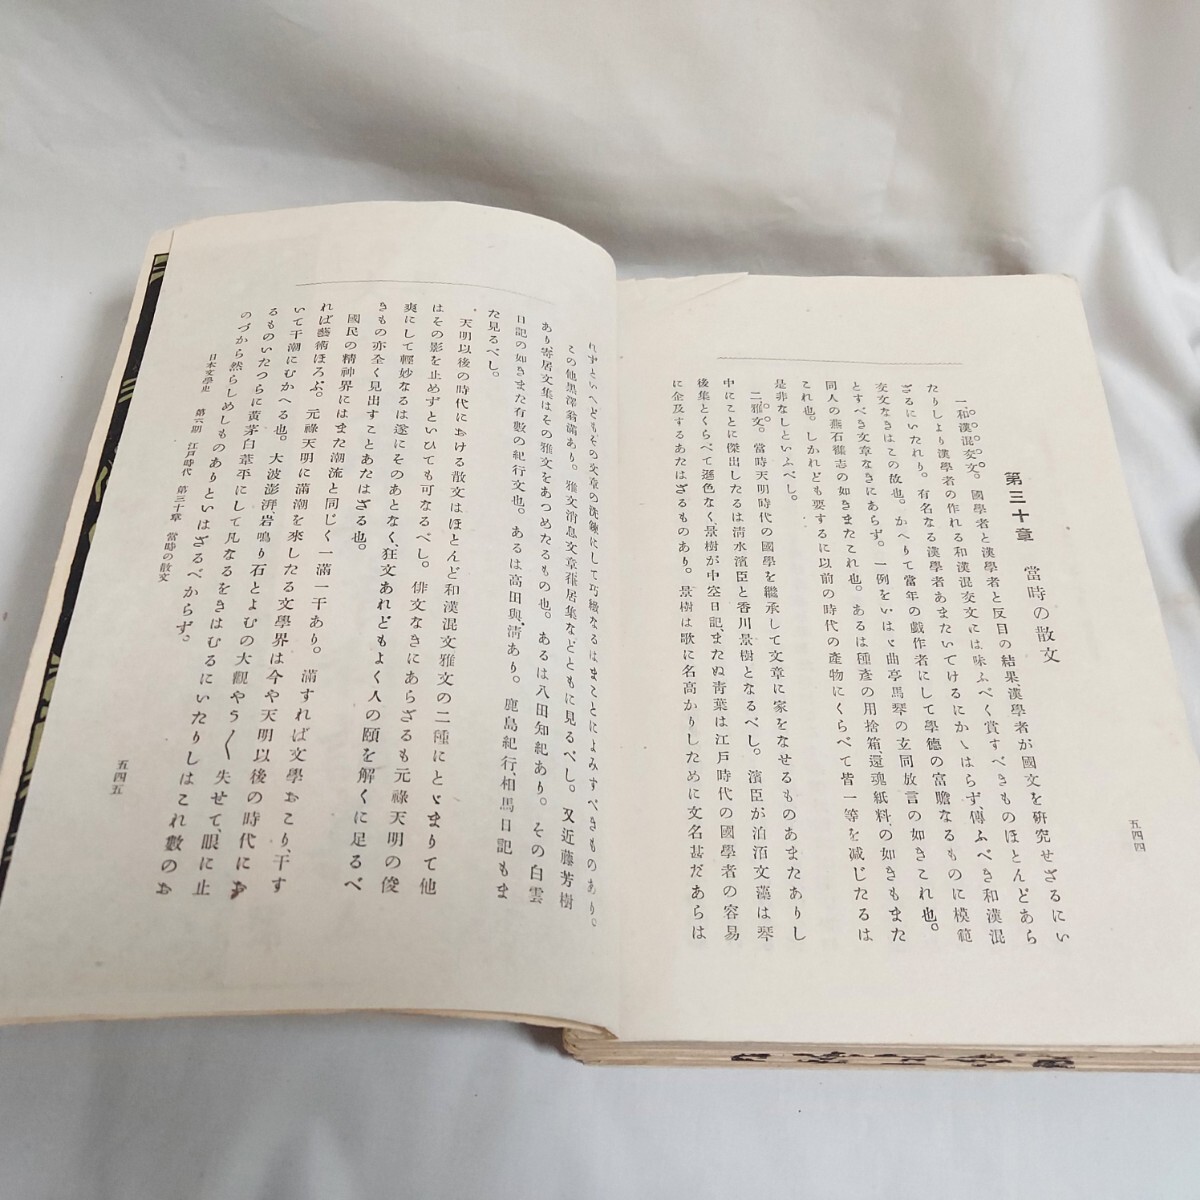 第三十章　當時の散文
一、和漢混交文。國學者と漢學者と反目の結果、漢學者が國文を硏究せざるにい
たりしより漢學者の作れる和漢混交文には味ふべく賞すべきものほとんどあら
ざるにいたれり。有名なる漢學者あまたいてけるにかゝはらず、傳ふべき和漢混
交文なきはこの故也。かへりて當年の戯作者にして學德の富贍なるものに模範
とすべき文章なきにあらず。一例をいはゞ曲亭馬琴の玄同放言の如きこれ也。
同人の燕石襍志の如きまたこれ也。あるは種彥の用捨箱、還魂紙料の如きもまた
これ也。しかれども要するに以前の時代の產物にくらべて皆一等を减じたるは
是非なしといふべし。
二、雅文。當時天明時代の國學を繼承して文章に家をなせるものあまたありし
中にことに傑出したるは淸水濱臣と香川景樹となるべし。濱臣が泊洦文藻は琴
後集とくらべて遜色なく、景樹が中空日記、またぬ靑葉は江戸時代の國學者の容易
に企及するあたはざるものあり。景樹は歌に名高かりしために文名甚だあらは
五四四
れずといへどもその文章の洗鍊にして巧緻なるはまことによみすべきものあり。
この他黑澤翁滿あり。雅文消息文章雅居集などともに見るべし。又近藤芳樹
あり寄居文集はその雅文をあつめたるもの也。あるは八田知紀あり。その白雲
日記の如きまた有數の紀行文也。あるは高田與淸あり。鹿島紀行、相馬日記もま
た見るべし。
天明以後の時代における散文はほとんど和漢混文雅文の二種にとゞまりて他
はその影を止めずといひても可なるべし。俳文なきにあらざるも元祿天明の俊
爽にして輕妙なるは遂にそのあとなく、狂文あれどもよく人の頤を解くに足るべ
きもの亦全く見出すことあたはざる也。
國民の精神界にはまた潮流と同じく一滿一干あり。滿すれば文學おこり、干す
れば藝術ほろぶ。元祿天明に滿潮を來したる文學界は今や天明以後の時代にお
いて干潮にむかへる也。大波澎湃、岩鳴り石とよむの大觀やう〳〵失せて、眼に止
るものいたつらに黃茅白葦平にして凡なるをきはむるにいたりしはこれ數のお
のづから然らしめしものありといはざるべからず。
日本文學史　第六期　江戸時代　第三十章　當時の散文
五四五